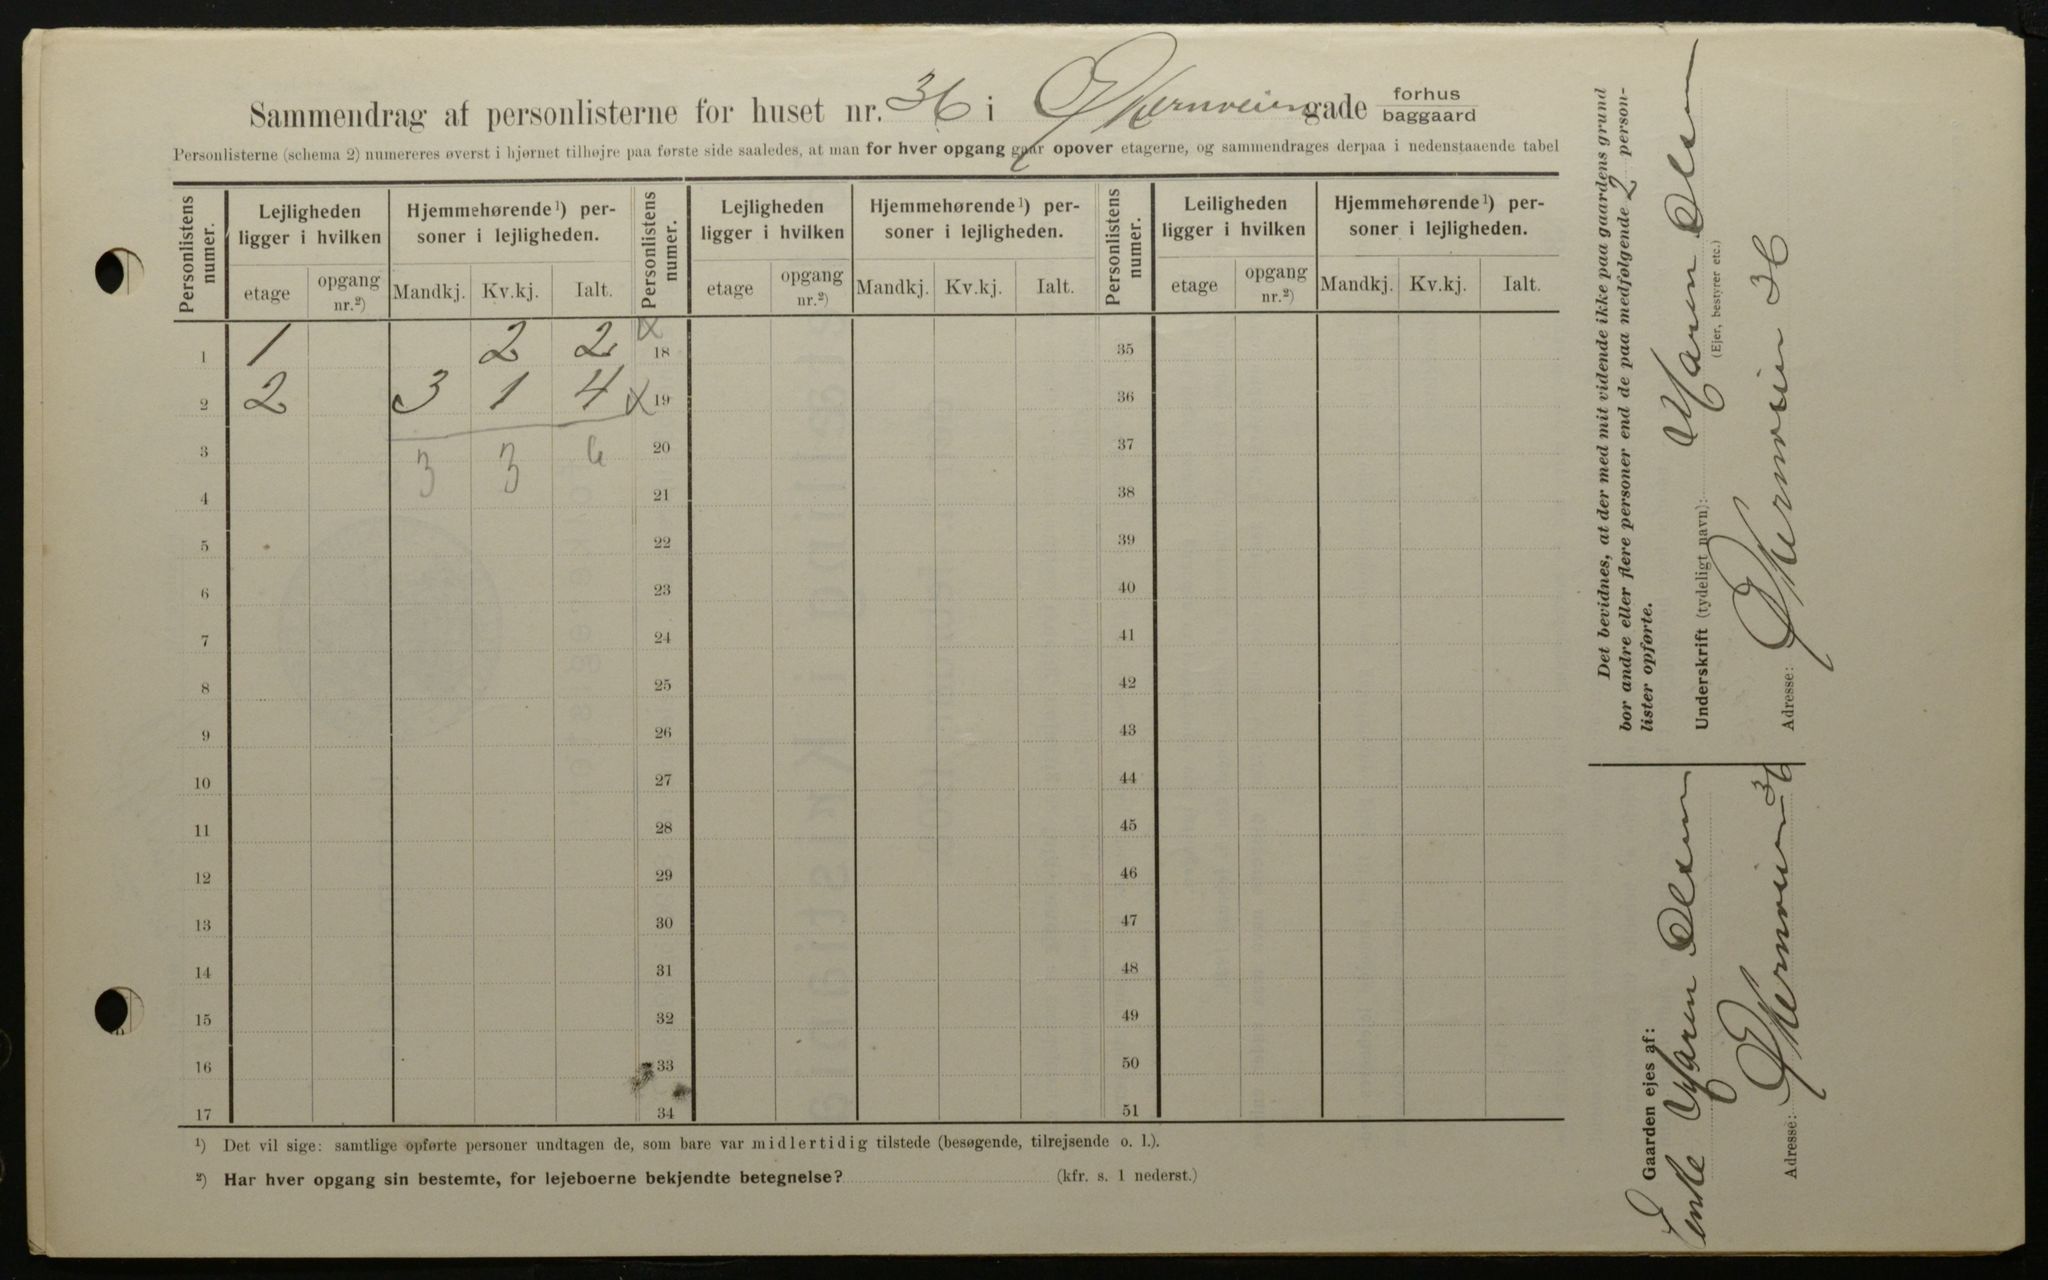 Sammendrag af personlisterne for huset nr. 36 i Ekernveien gade forhus baggaard
Personlisterne (schema 2) numereres øverst i hjørnet tilhøjre paa første side saaledes, at man for hver opgang gaar opover etagerne, og sammendrages derpaa i nedenstaaende tabel
Personlistens numer. Lejligheden ligger i hvilken Hjemmehørende ¹) personer i lejligheden. Personlistens numer. Lejligheden ligger i hvilken Hjemmehørende ¹) personer i lejligheden. Personlistens numer. Leiligheden ligger i hvilken Hjemmehørende ¹) personer i lejligheden.
etage opgang nr.²) Mandkj. Kv.kj. Ialt. etage opgang nr.²) Mandkj. Kv.kj. Ialt. etage opgang nr.²) Mandkj. Kv.kj. Ialt.
1 1 2 2 x 18 35
2 2 3 1 4 x 19 36
3 3 3 6 20 37
4 21 38
5 22 39
6 23 40
7 24 41
8 25 42
9 26 43
10 27 44
11 28 45
12 29 46
13 30 47
14 31 48
15 32 49
16 33 50
17 34 51
¹) Det vil sige: samtlige opførte personer undtagen de, som bare var midlertidig tilstede (besøgende, tilrejsende o. l.).
²) Har hver opgang sin bestemte, for lejeboerne bekjendte betegnelse? (kfr. s. 1 nederst.)
Det bevidnes, at der med mit vidende ikke paa gaardens grund
bor andre eller flere personer end de paa medfølgende 2 person-
lister opførte.
Underskrift (tydeligt navn): Maren Olsen
(Ejer, bestyrer etc.)
Adresse: Ekernveien 36
Gaarden ejes af:
Enke Maren Olsen
Adresse: Ekernveien 36